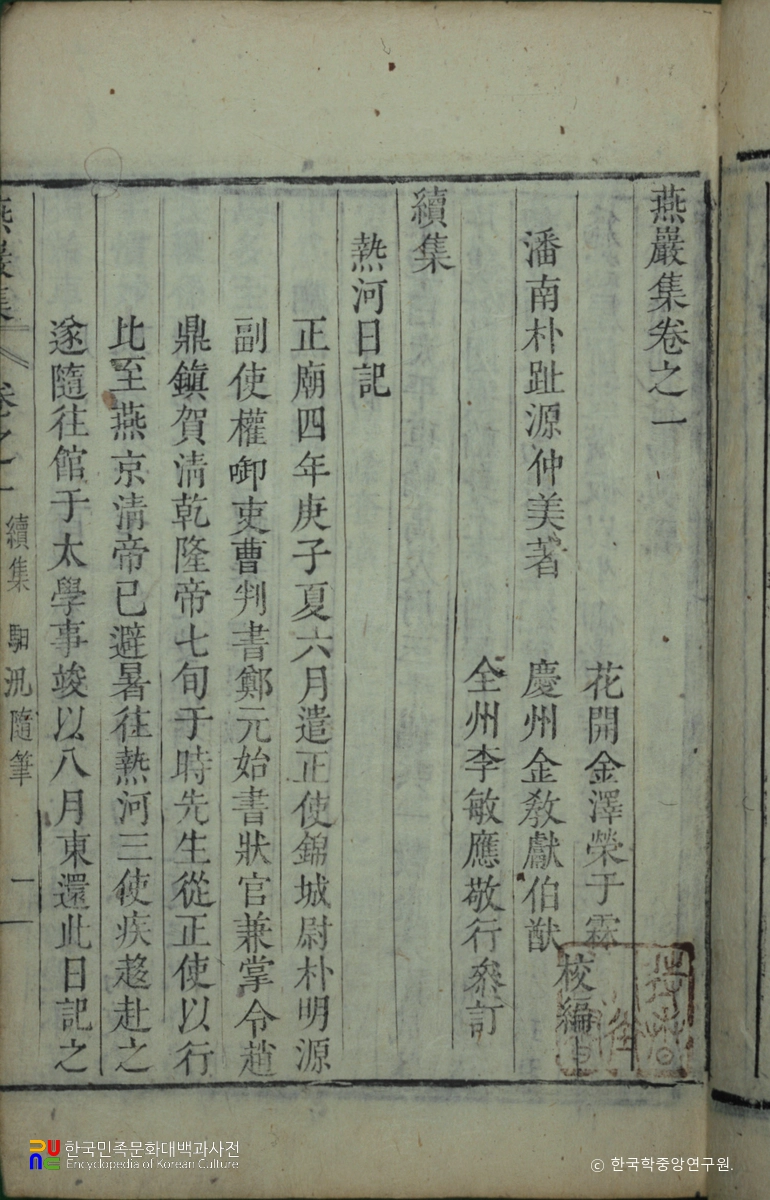 燕巖集卷之一
潘南朴趾源仲美著
花開金澤榮于霖
慶州金敎獻伯猷
校編
全州李敏應敬行參訂
續集
熱河日記
正廟四年庚子夏六月遣正使錦城尉朴明源
副使權啣吏曹判書鄭元始書狀官兼掌令趙
鼎鎭賀淸乾隆帝七旬于時先生從正使以行
比至燕京淸帝已避暑往熱河三使疾趍赴之
遂隨往館于太學事竣以八月東還此日記之
燕巖集 卷之一 續集 馹汛隨筆 一
한국민족문화대백과사전
Encyclopedia of Korean Culture
© 한국학중앙연구원.